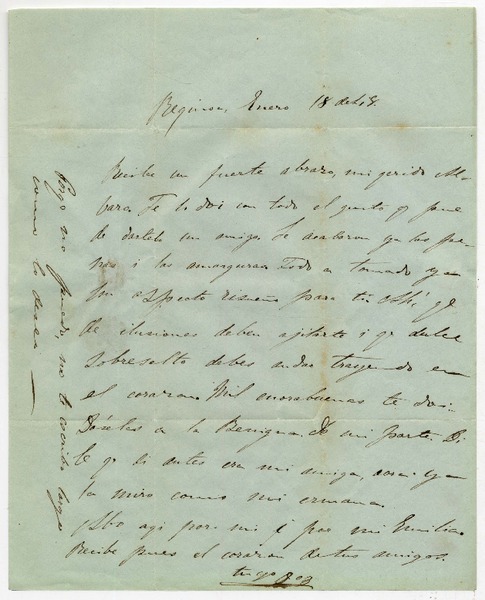 Enero 18 de
Recibe un fuerte abrazo, mi qerido Al-
varo. Te lo doi con todo el gusto q puede
de dártelo un amigo. Se acabaron ya las pe-
nas i las amarguras. Todo a tomado ya
un aspecto risueño para tu
de ilusiones deben ajitarte i qe dulce
sobresalto debes andar trayendo en
el corazon. Mil enorabuenas te doi.
Dáselas a la Benigna de mi parte. Di
le qe si antes era mi amiga, aora ya
la miro como mi ermana.
aqi por mi i por mi Emilia.
Recibe pues el corazon de tus amigos.
Poqo no puedo, no te escribo largo
como lo desea